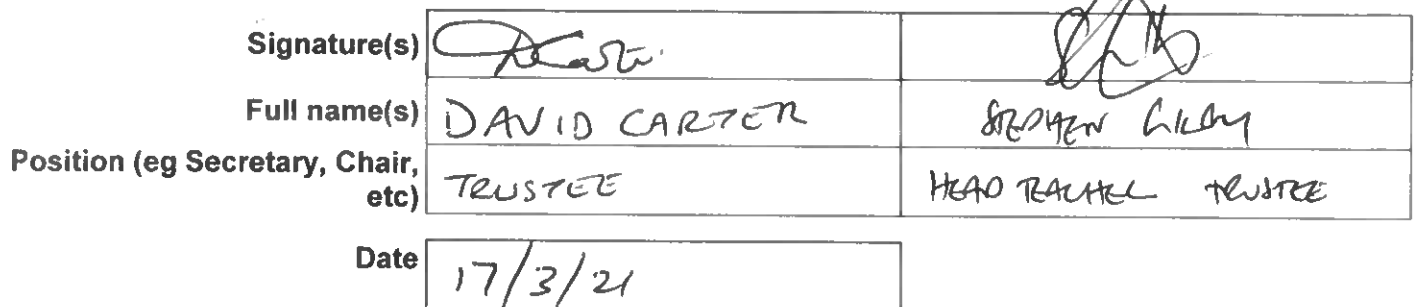 Signature(s)
Full name(s) DAVID CARTER STEPHEN
Position (eg Secretary, Chair,
etc) TRUSTEE HEAD TEACHER TRUSTEE
Date 17/3/21